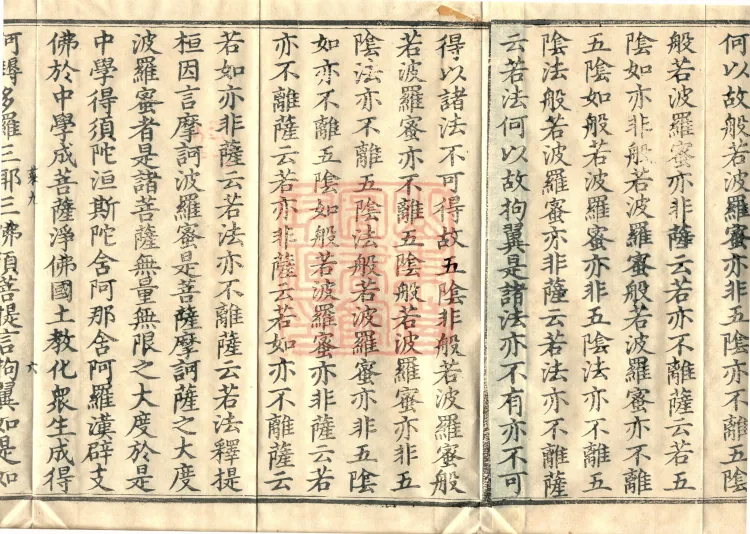 何以故般若波羅蜜亦非五陰
般若波羅蜜亦非薩云若亦不離薩云若五
陰如亦非般若波羅蜜般若波羅蜜亦不離
五陰如般若波羅蜜亦非五陰法亦不離五
陰法般若波羅蜜亦非薩云若法亦不離薩
云若法何以故拘翼是諸法亦不有亦不可
得以諸法不可得故五陰非般若波羅蜜般
若波羅蜜亦不離五陰般若波羅蜜亦非五
陰法亦不離五陰法般若波羅蜜亦非五陰
如亦不離五陰如般若波羅蜜亦非薩云若
亦不離薩云若亦非薩云若如亦不離薩云
若如亦非薩云若法亦不離薩云若法釋提
桓因言摩訶波羅蜜是菩薩摩訶薩之大度
波羅蜜者是諸菩薩無量無限之大度於是
中學得須陀洹斯陀含阿那含阿羅漢辟支
佛於中學成菩薩淨佛國土教化衆生成得
阿耨多羅三耶三佛須菩提言拘翼如是如